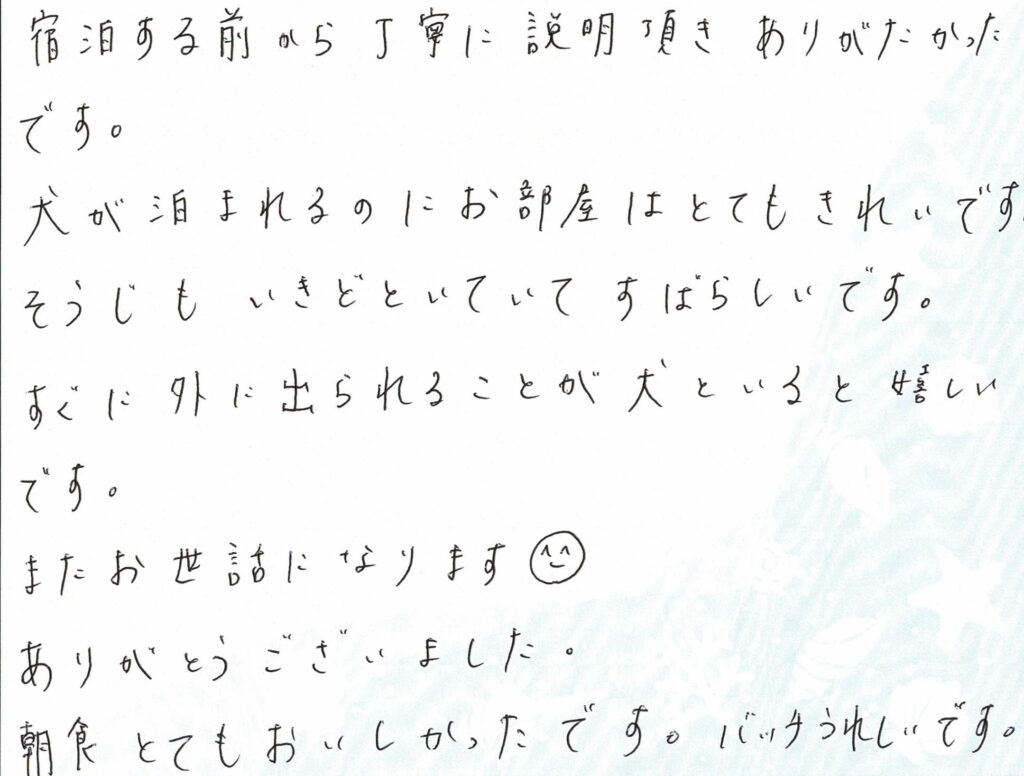 宿泊する前から丁寧に説明頂きありがたかった
です。
犬が泊まれるのにお部屋はとてもきれいです
そうじもいきどといていてすばらしいです。
すぐに外に出られることが犬といると嬉しい
です。
またお世話になります
ありがとうございました。
朝食とてもおいしかったです。バッチうれしいです。